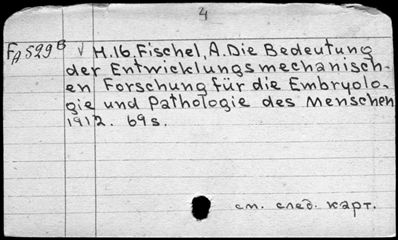 4
FA 529 B √ H.16. Fischel, A. Die Bedeutung
der Entwicklungsmechanisch-
en Forschung für die Embryolo-
gie und Pathologie des Menschen
1912. 69s.
см. след. карт.